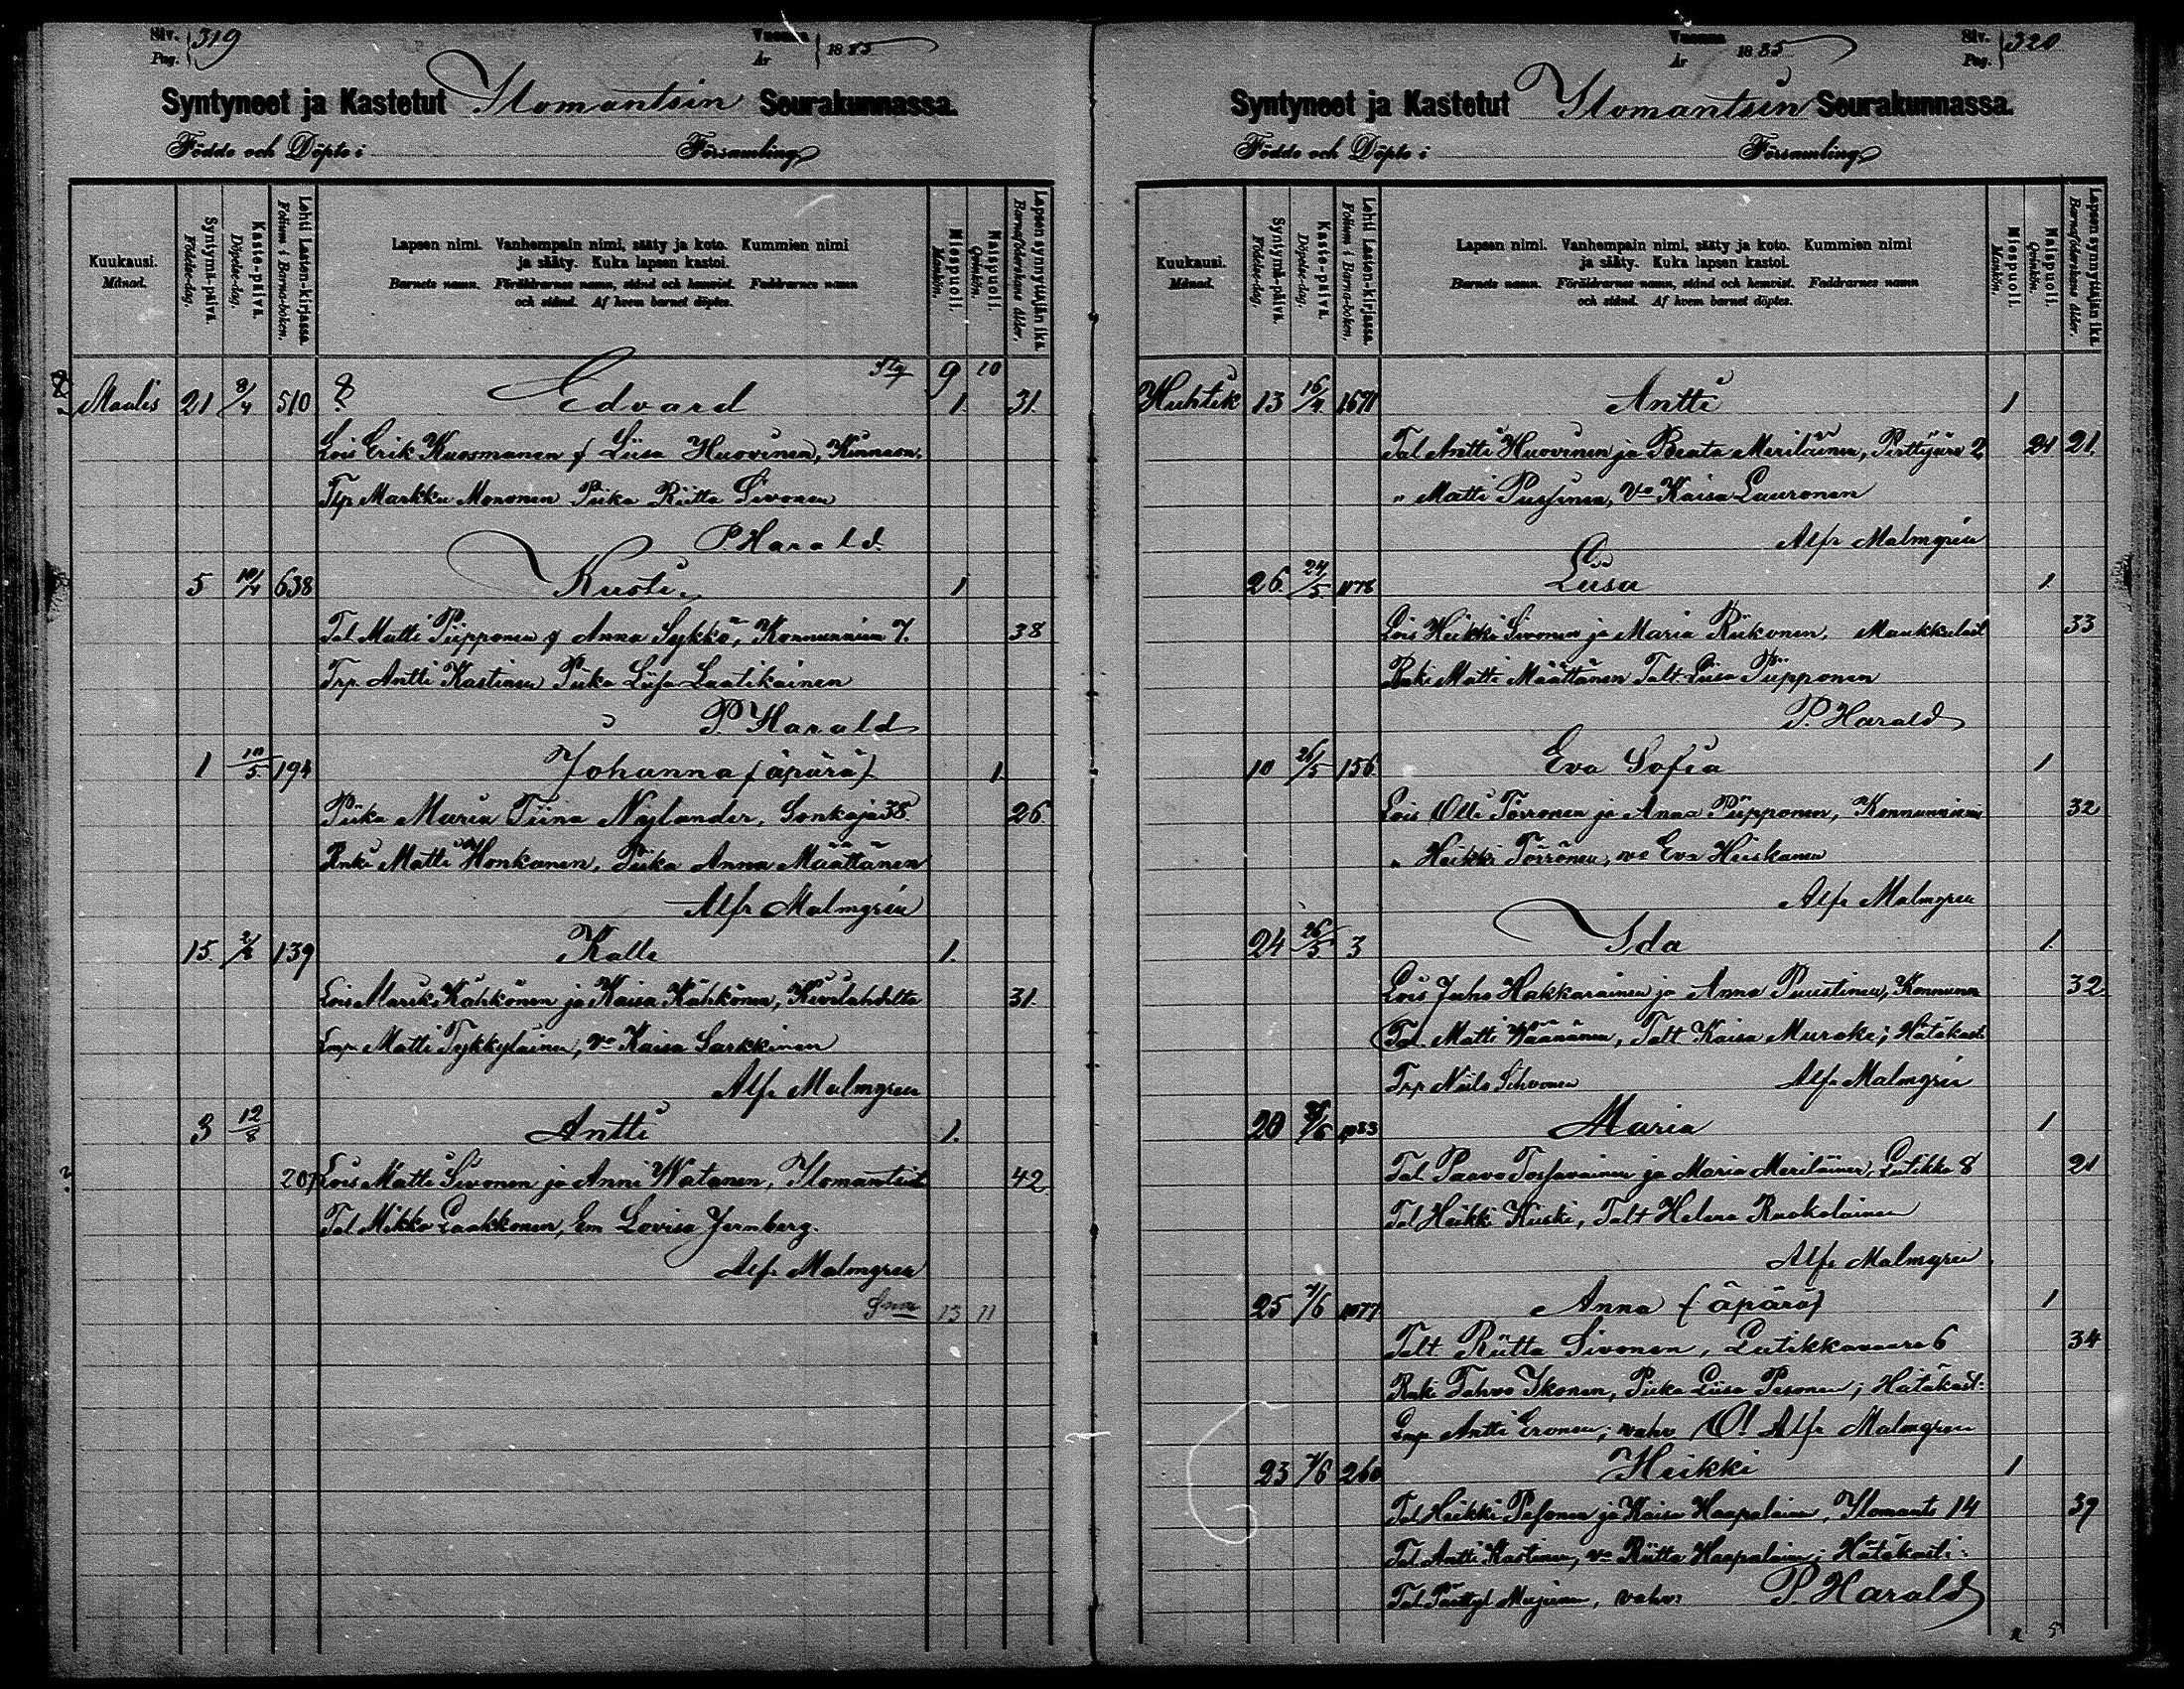 Siv. Pag. 319 Vuonna År 1885
Syntyneet ja Kastetut Ilomantsin Seurakunnassa.
Födde och Döpte i Församling
Kuukausi. Månad. Syntymä-päivä. Födelse-dag. Kaste-päivä. Döpelse-dag. Lehti Lasten-kirjassa. Folium i Barna-boken. Lapsen nimi. Vanhempain nimi, sääty ja koto. Kummien nimi ja sääty. Kuka lapsen kastoi. Barnets namn. Föräldrarnes namn, stånd och hemvist. Faddrarnes namn och stånd. Af hvem barnet döptes. Miespuoli. Mankön. Naispuoli. Qvinkön. Lapsen synnyttäjän ikä. Barnaföderskans ålder.
9 10
Maalis 21 8/4 510 Edvard 1 31.
Lois Erik Kuosmanen & Liisa Huovinen, Kinnasn.
Tlp Markku Mononen Piika Riitta Sivonen
P. Harald.
5 10/4 638 Kusti. 1
Tal Matti Piipponen & Anna Sykkö, Konnunniem 7. 38
Trp. Antti Kastinen Piika Liisa Laatikainen
P. Harald
1 10/5 194 Johanna (äpärä) 1
Piika Maria Tiina Nylander, Sonkaja 38. 26
Renki Matti Honkanen, Piika Anna Määttänen
Alfr Malmgrén
15. 139 Kalle 1.
Lois Marik. Kähkönen ja Kaisa Kähkönen, Kivilahdelta 31.
Lmp Matti Tykkyläinen, vo Kaisa Sarkkinen
Alfr Malmgren
3 12/8 Antti 1.
207 Lois Matti Sivonen ja Anni Watanen, Ilomantsist 42
Tal Mikko Laakkonen, Em Lovisa Jernberg.
Alfr Malmgren
Sma 13 11
Siv. Pag. 320 Vuonna År 1885
Syntyneet ja Kastetut Ilomantsin Seurakunnassa.
Födde och Döpte i Församling
Kuukausi. Månad. Syntymä-päivä. Födelse-dag. Kaste-päivä. Döpelse-dag. Lehti Lasten-kirjassa. Folium i Barna-boken. Lapsen nimi. Vanhempain nimi, sääty ja koto. Kummien nimi ja sääty. Kuka lapsen kastoi. Barnets namn. Föräldrarnes namn, stånd och hemvist. Faddrarnes namn och stånd. Af hvem barnet döptes. Miespuoli. Mankön. Naispuoli. Qvinkön. Lapsen synnyttäjän ikä. Barnaföderskans ålder.
Huhtik 13 16/4 1671 Antti 1
Tal Antti Huovinen ja Beata Meriläinen, Perttijärv 2 21 21.
" Matti Pussinen, Vo Kaisa Lauronen
Alfr Malmgrén
26. 24/5 1178 Liisa 1.
Lois Heikki Sivonen ja Maria Riikonen, Maukkulast 33
Renki Matti Määttänen Talt. Liisa Piipponen
P. Harald
10 26/5 156 Eva Sofia 1
Lois Olli Törrönen ja Anna Piipponen, Konnunniemi 32
" Heikki Törrönen, vo Eva Heiskanen
Alfr Malmgren
24 26/5 3 Ida 1.
Lois Juho Hakkarainen ja Anna Puustinen, Konnunn 32
Tal. Matti Wäänänen, Talt Kaisa Murake; Hätäkast:
Trp Niilo Sihvonen Alfr Malmgrén
20 1083 Maria 1
Tal Paavo Tossavainen ja Maria Meriläinen, Lutikka 8 21
Tal Heikki Kiiski, Talt Helena Ruokolainen
Alfr Malmgren
25 7/6 1077 Anna (äpärä) 1
Talt Riitta Sivonen, Lutikkavaara 6 34
Renki Tahvo Ikonen, Piika Liisa Pesonen; Hätäkast:
Lmp Antti Eronen; vahv. Alfr Malmgren
23 7/6 260 Heikki 1
Tal Heikki Pesonen ja Kaisa Haapalainen, Ilomants 14 39
Tal Antti Kastinen, vo Riitta Haapalainen; Hätäkasti:
Tal Mujunen, vahv: P. Harald
2 5